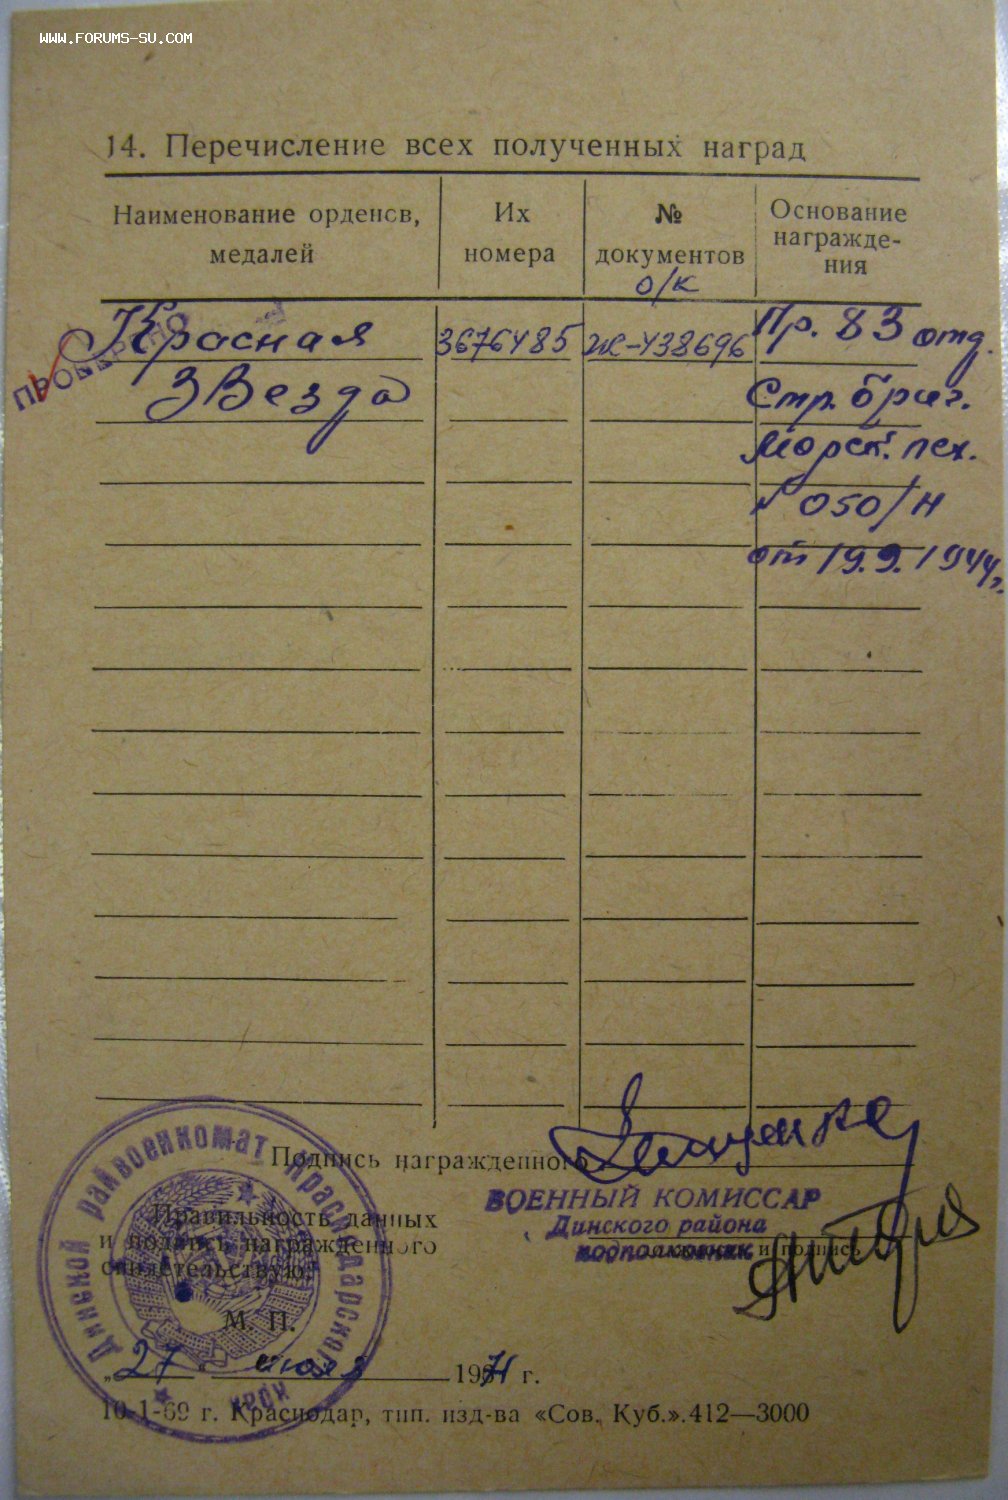 WWW.FORUMS-SU.COM
14. Перечисление всех полученных наград
Наименование орденов, медалей
Их номера
№ документов
о/к
Основание награжде-
ния
ПРОВЕРЕНО
Красная 3676485 Ж-438696 Пр. 83 отд.
Звезда Стр. бриг.
Морск. пех.
№ 050/Н
от 19.9.1944г.
Подпись награжденного
Правильность данных
и подпись награжденного
свидетельствую:
ВОЕННЫЙ КОМИССАР
Динского района
подполковник
и подпись
М. П.
„27" июля 1971 г.
10-1-69 г. Краснодар, тип. изд-ва «Сов. Куб.». 412—3000
Динской райвоенкомат Краснодарского края